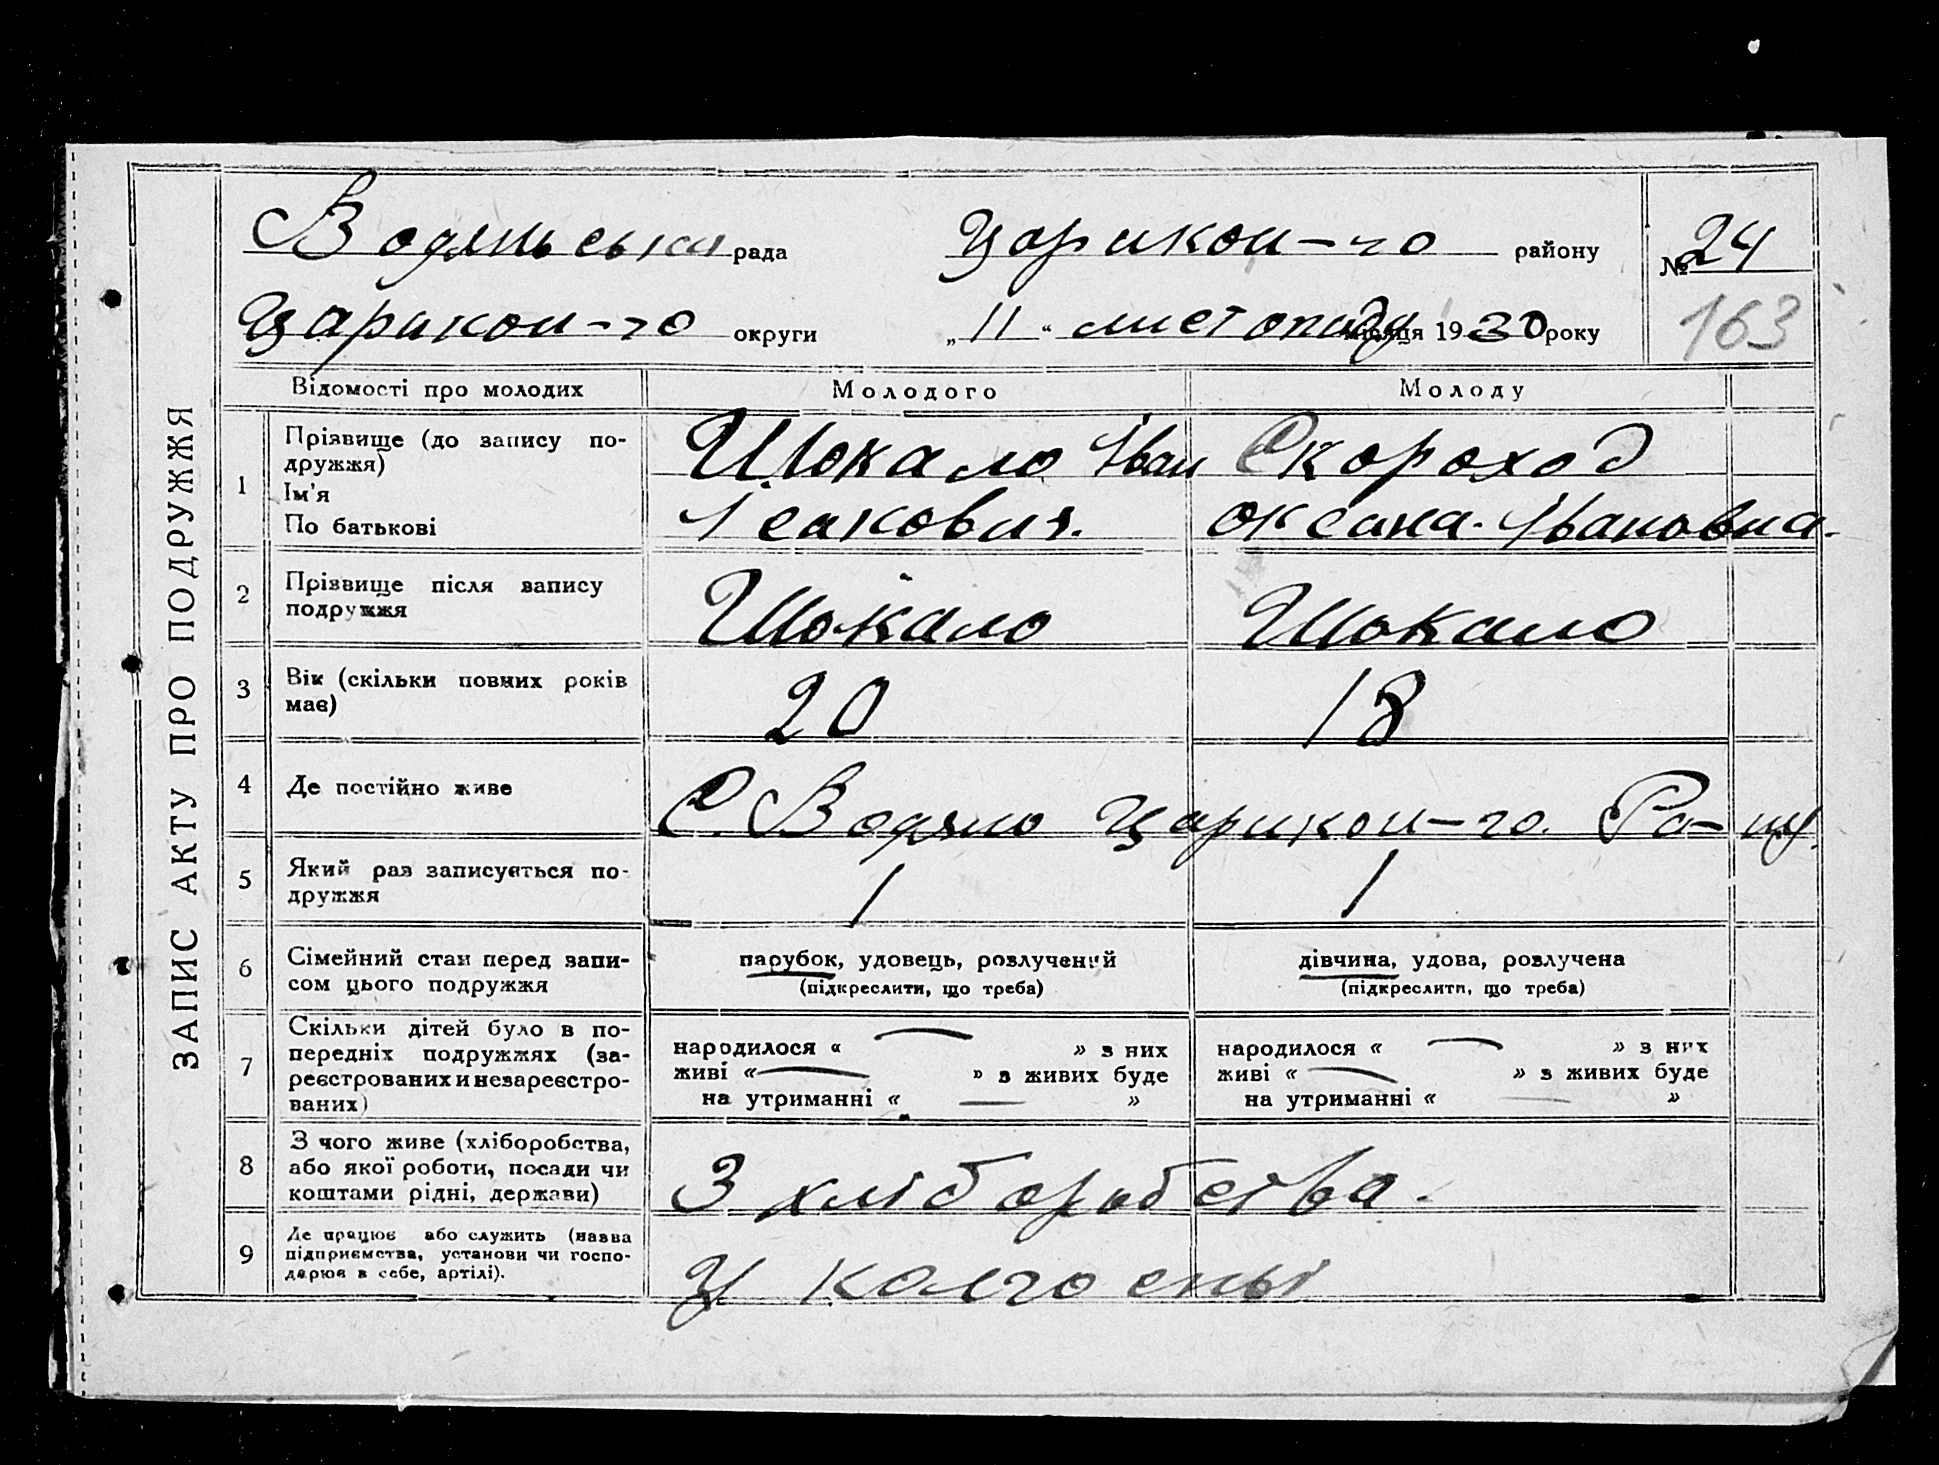 ЗАПИС АКТУ ПРО ПОДРУЖЖЯ
Водянська рада Царикон-го району № 24
Царикон-го округи „11“ листопаду місяця 1930 року 163
Відомості про молодих Молодого Молоду
1 Прізвище (до запису по-
дружжя)
Ім'я
По батькові
Шокало Іван
Ісакович.
Скороход
Оксана. Івановна.
2 Прізвище після запису
подружжя
Шокало Шокало
3 Вік (скільки повних років
має)
20 18
4 Де постійно живе С. Водяно Царикон-го. Ра-ну.
5 Який раз записується по-
дружжя
1 1
6 Сімейний стан перед запи-
сом цього подружжя
парубок, удовець, розлучений
(підкреслити, що треба)
дівчина, удова, розлучена
(підкреслити, що треба)
7 Скільки дітей було в по-
передніх подружжях (за-
реєстрованих и незареєстро-
ваних)
народилося « — » з них
живі « — » з живих буде
на утриманні « — »
народилося « — » з них
живі « — » з живих буде
на утриманні « — »
8 З чого живе (хліборобства,
або якої роботи, посади чи
коштами рідні, держави)
З хліборобства.
9 Де працює або служить (назва
підприємства, установи чи госпо-
дарює в себе, артілі).
У колгоспі